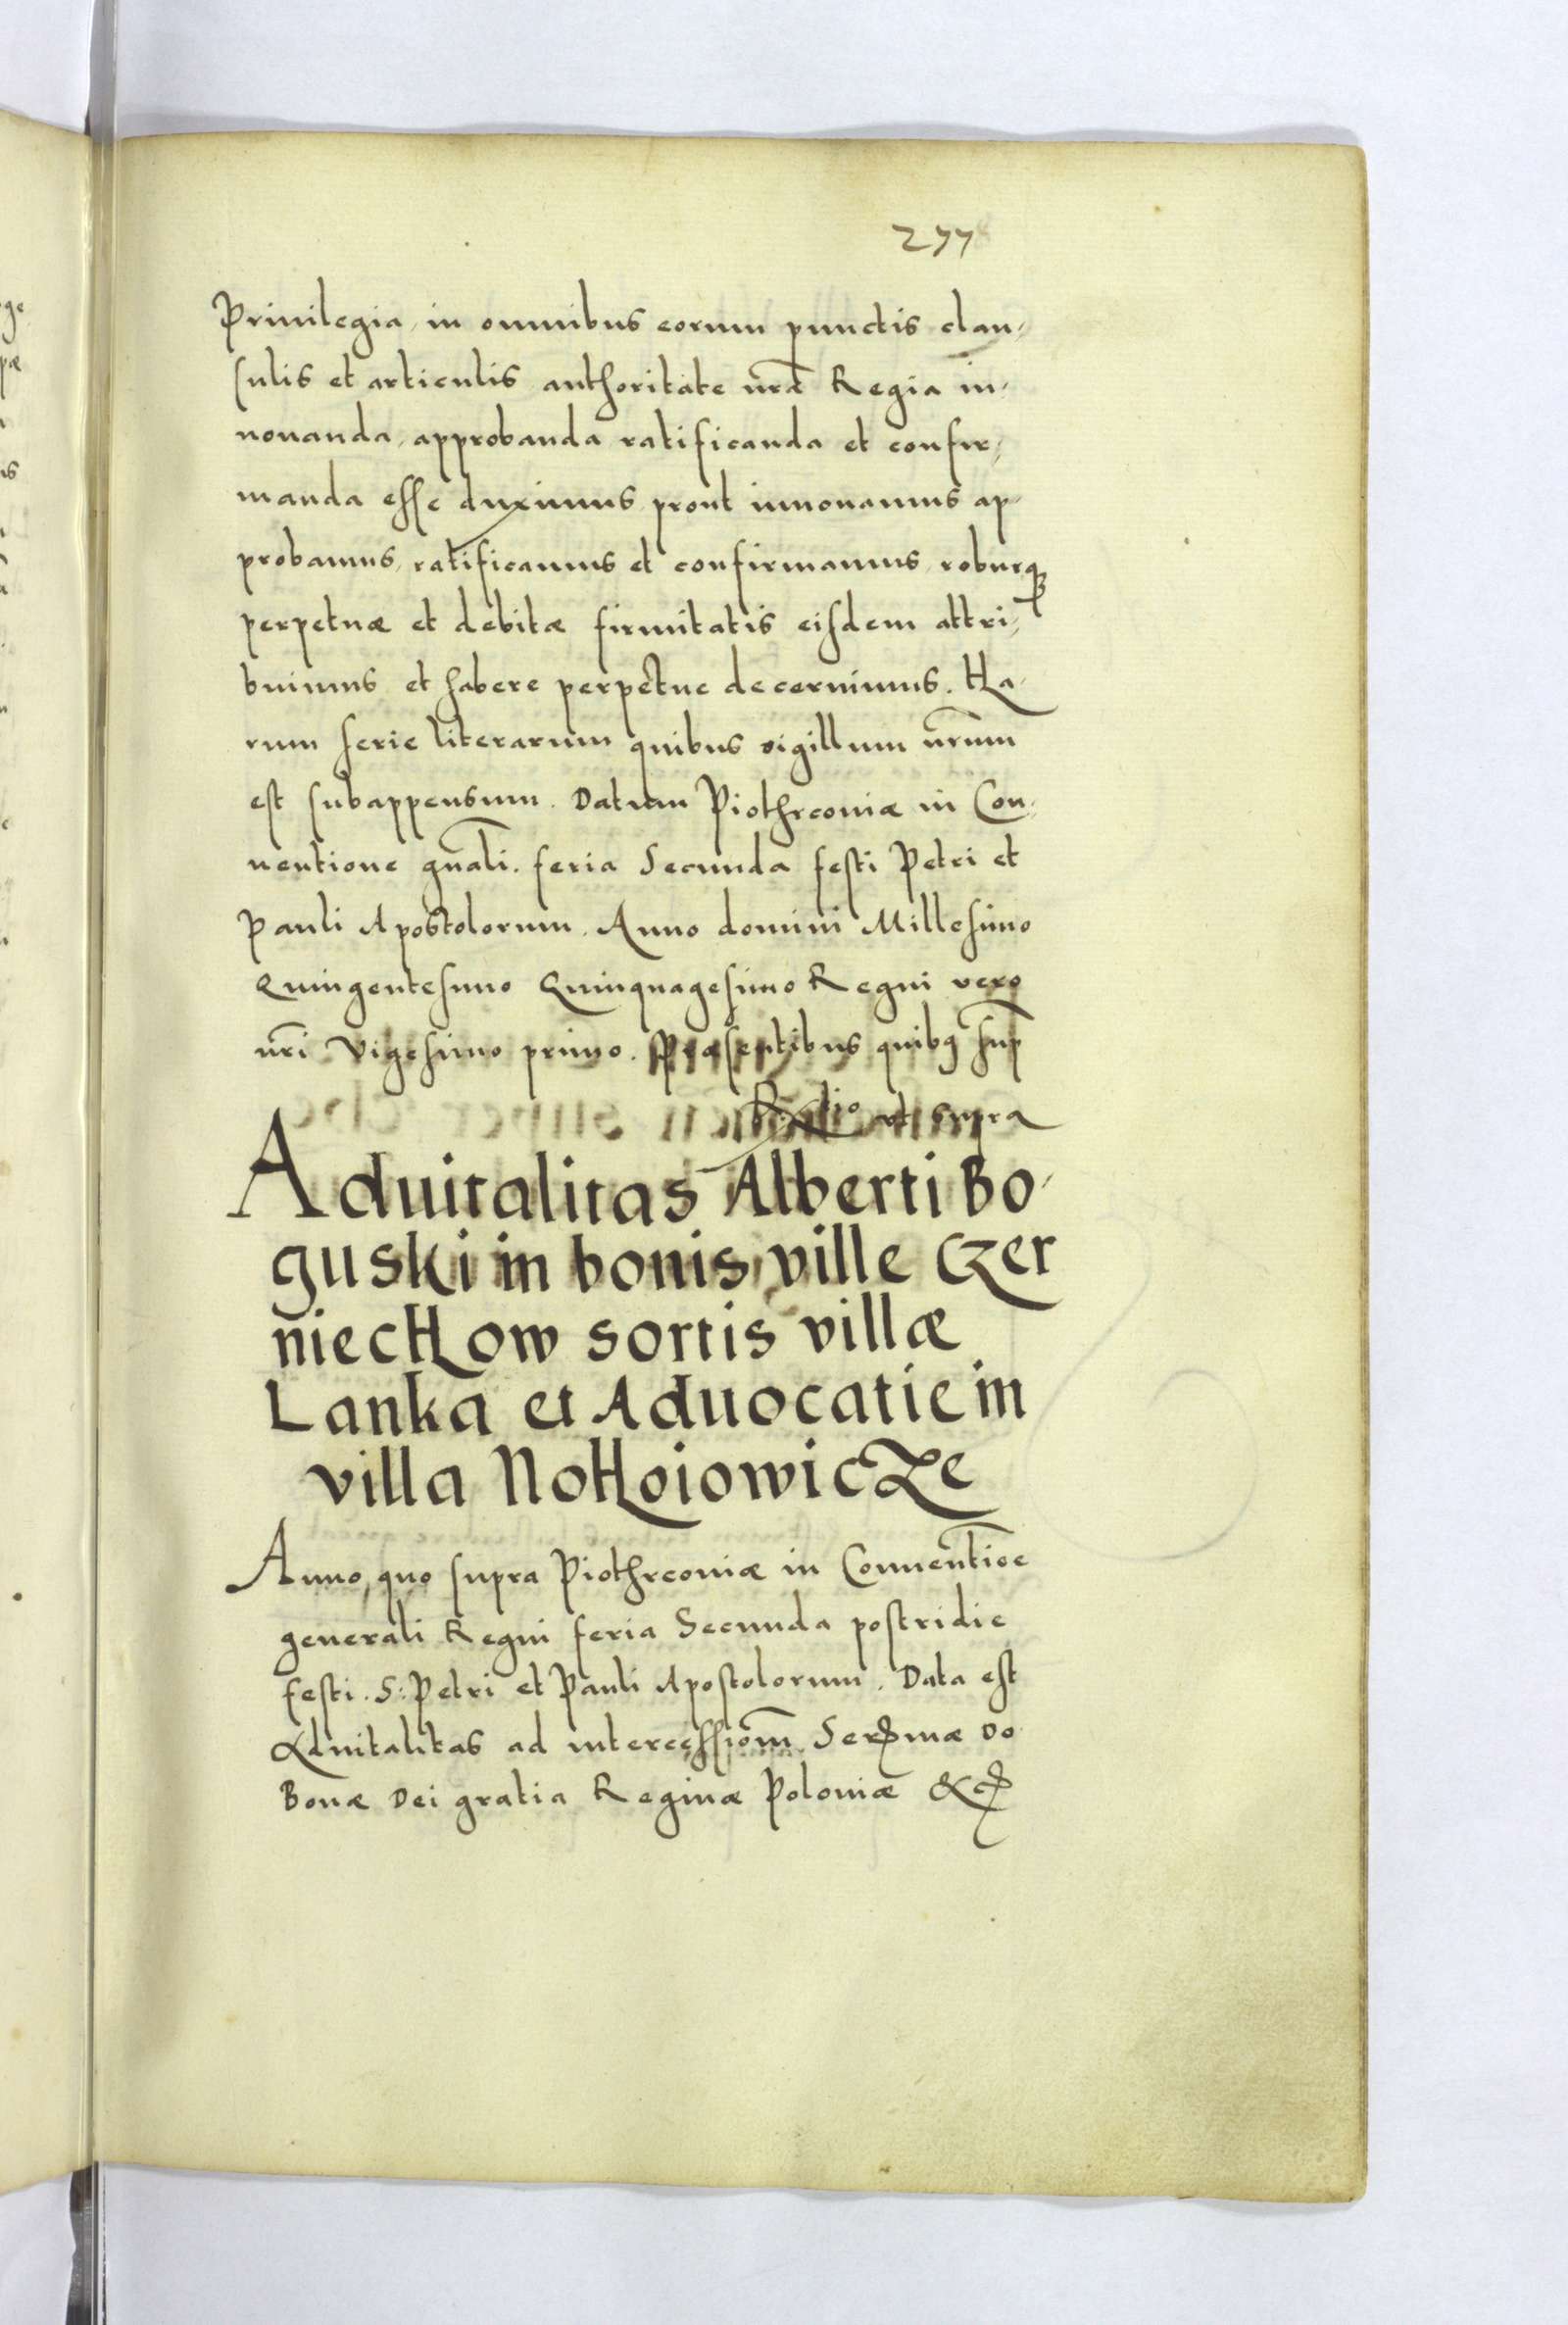 277
Priuilegia, in omnibus eorum punctis clau,
sulis et articulis authoritate nr̃a Regia in,
nouanda, approbanda ratificanda et confir,
manda esse duximus, prout innouamus ap,
probamus, ratificamus et confirmamus, roburq3
perpetuæ et debitæ firmitatis eisdem attri,
buimus et habere perpetue decernimus. Ha,
rum serie literarum quibus sigillum nr̃um
est subappensum. Datum Piothrcouiæ in Con,
uentione gnãli. feria Secunda festi Petri et
Pauli Apostolorum. Anno domini Millesimo
Quingentesimo Quinquagesimo Regni vero
nr̃i vigesimo primo. Præsentibus quibq sup̃
R̃tio ut supra
Aduitalitas Alberti Bo,
guski in bonis ville Czer
niechow sortis villæ
Lanka et Aduocatie in
villa Nohoiowicze
Anno, quo supra Piothrcouiæ in Conuentiõe
generali Regni feria Secunda postridie
festi. S: Petri et Pauli Apostolorum. Data est
Aduitalitas ad intercessiõm Sermæ Do
Bonæ Dei gratia Reginæ Poloniæ &c